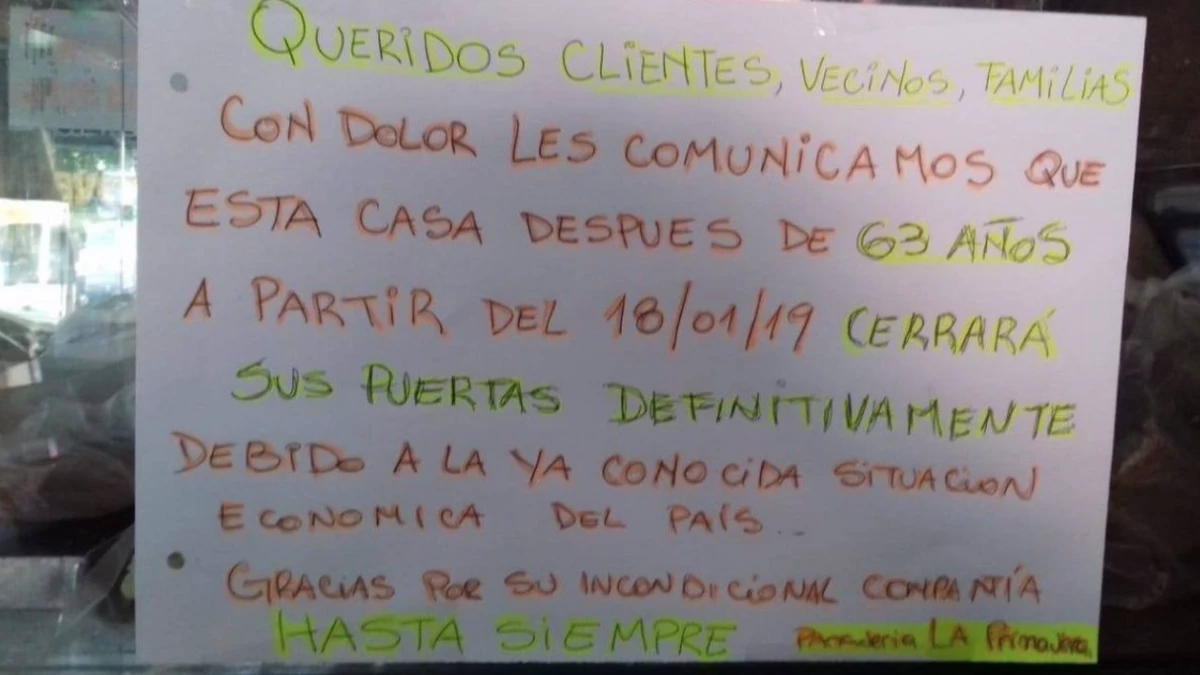 QUERIDOS CLIENTES, VECINOS, FAMILIAS
CON DOLOR LES COMUNICAMOS QUE
ESTA CASA DESPUES DE 63 AÑOS
A PARTIR DEL 18/01/19 CERRARÁ
SUS PUERTAS DEFINITIVAMENTE
DEBIDO A LA YA CONOCIDA SITUACION
ECONOMICA DEL PAÍS...
GRACIAS POR SU INCONDICIONAL COMPANÍA
HASTA SIEMPRE Panaderia LA Primavera